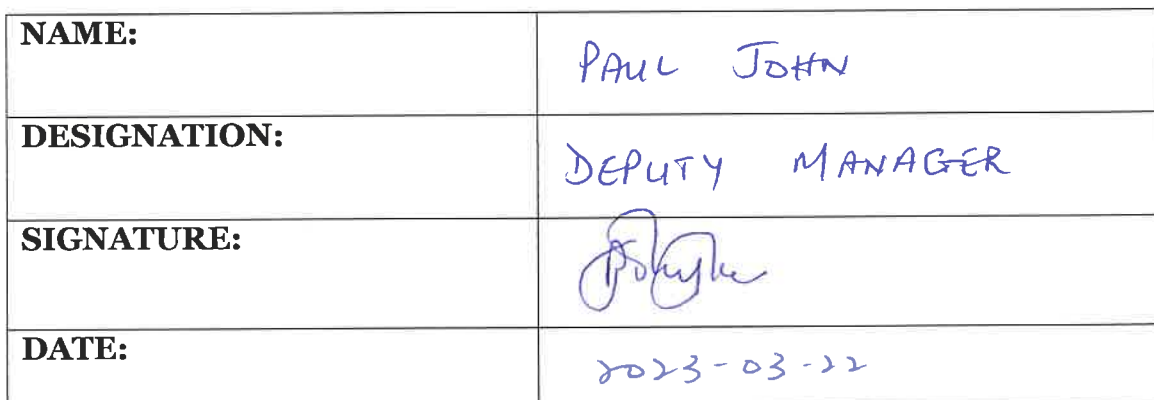 NAME: PAUL JOHN
DESIGNATION: DEPUTY MANAGER
SIGNATURE:
DATE: 2023-03-22